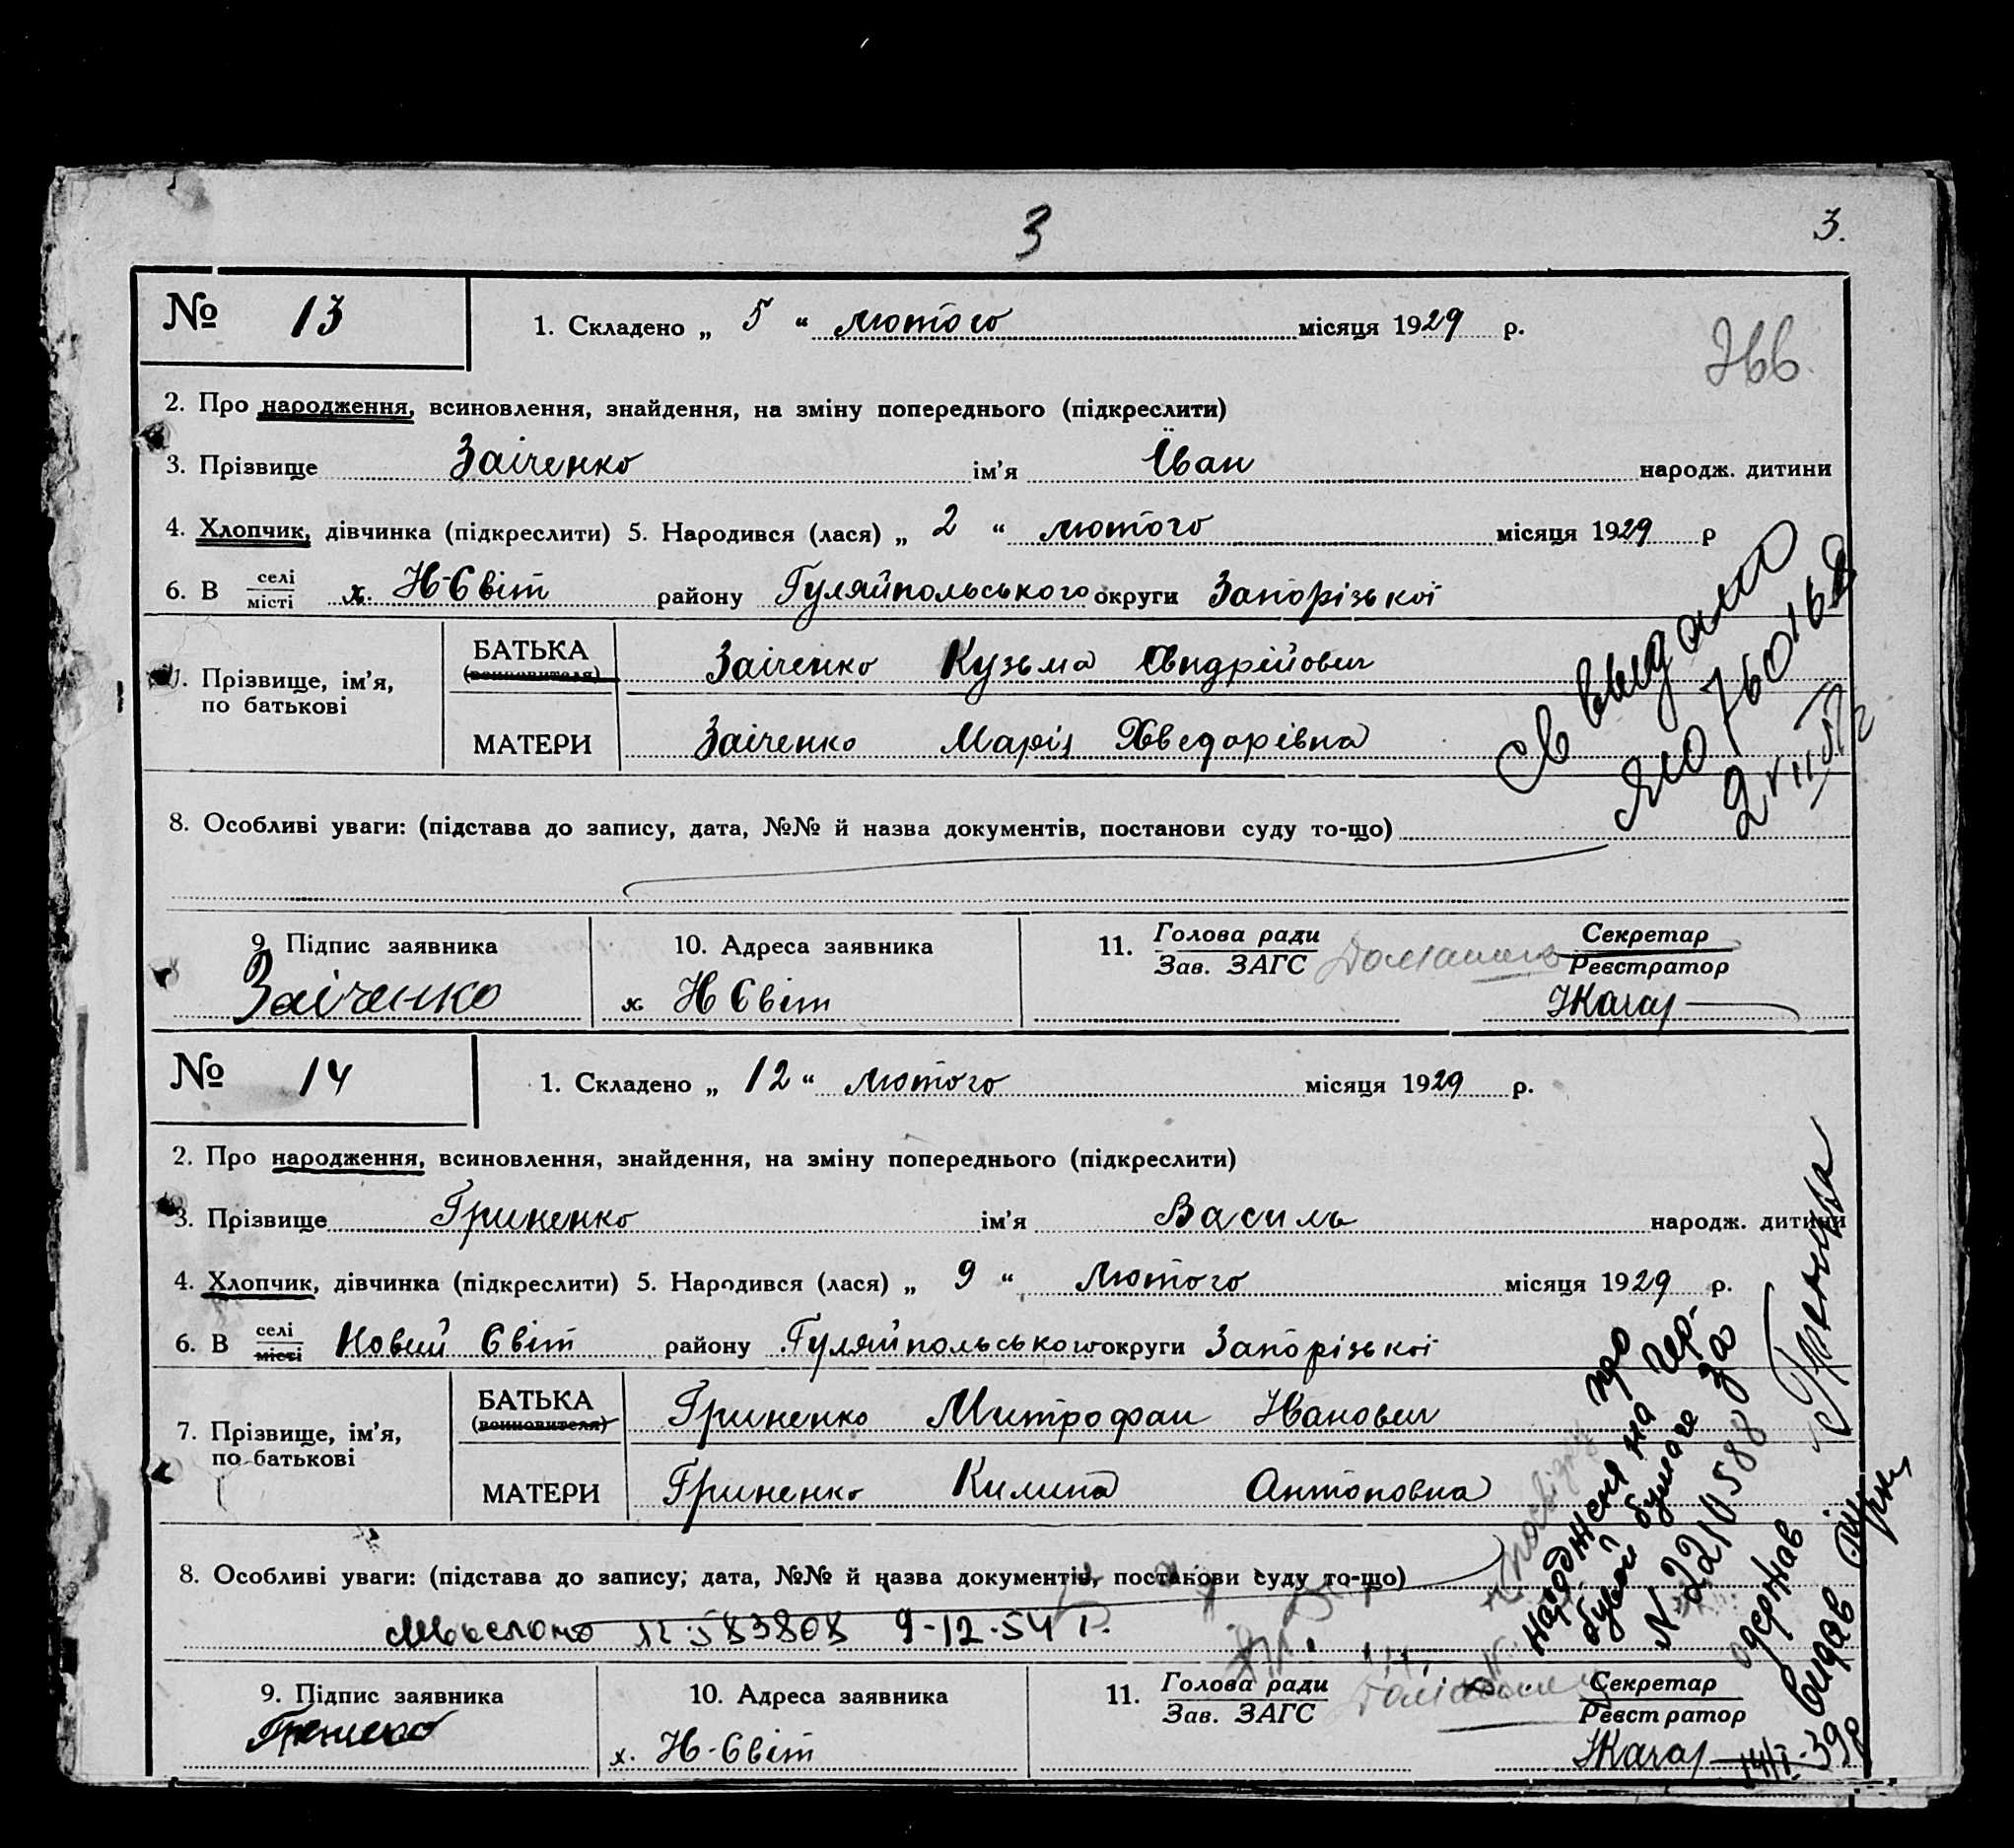 3
3.
№ 13
1. Складено „ 5 “ лютого місяця 1929 р.
2. Про народження, всиновлення, знайдення, на зміну попереднього (підкреслити)
3. Прізвище Заіченко ім'я Іван народж. дитини
4. Хлопчик, дівчинка (підкреслити) 5. Народився (лася) „ 2 “ лютого місяця 1929 р
6. В селі/місті х. Н-Світ району Гуляйпольського округи Запорізької
7. Прізвище, ім'я, по батькові
БАТЬКА (всиновителя) Заіченко Кузьма Андрійович
МАТЕРИ Заіченко Марія Хведорівна
Св выдано
ЯЮ
8. Особливі уваги: (підстава до запису, дата, №№ й назва документів, постанови суду то-що)
9. Підпис заявника
Заіченко
10. Адреса заявника
х Н Світ
11. Голова ради
Зав. ЗАГС
Секретар
Реєстратор
№ 14
1. Складено „ 12 “ лютого місяця 1929 р.
2. Про народження, всиновлення, знайдення, на зміну попереднього (підкреслити)
3. Прізвище Гриненко ім'я Василь народж. дитини
4. Хлопчик, дівчинка (підкреслити) 5. Народився (лася) „ 9 “ лютого місяця 1929 р.
6. В селі/місті Новий Світ району Гуляйпольського округи Запорізької
7. Прізвище, ім'я, по батькові
БАТЬКА (всиновителя) Гриненко Митрофан Иванович
МАТЕРИ Гриненко Килина Антоновна
8. Особливі уваги: (підстава до запису; дата, №№ й назва документів, постанови суду то-що)
583808 9-12-54 г.
народження на гер-
бувой бумаге за
N 2210588
одержав
видав
9. Підпис заявника
10. Адреса заявника
х. Н-Світ
11. Голова ради
Зав. ЗАГС
Секретар
Реєстратор